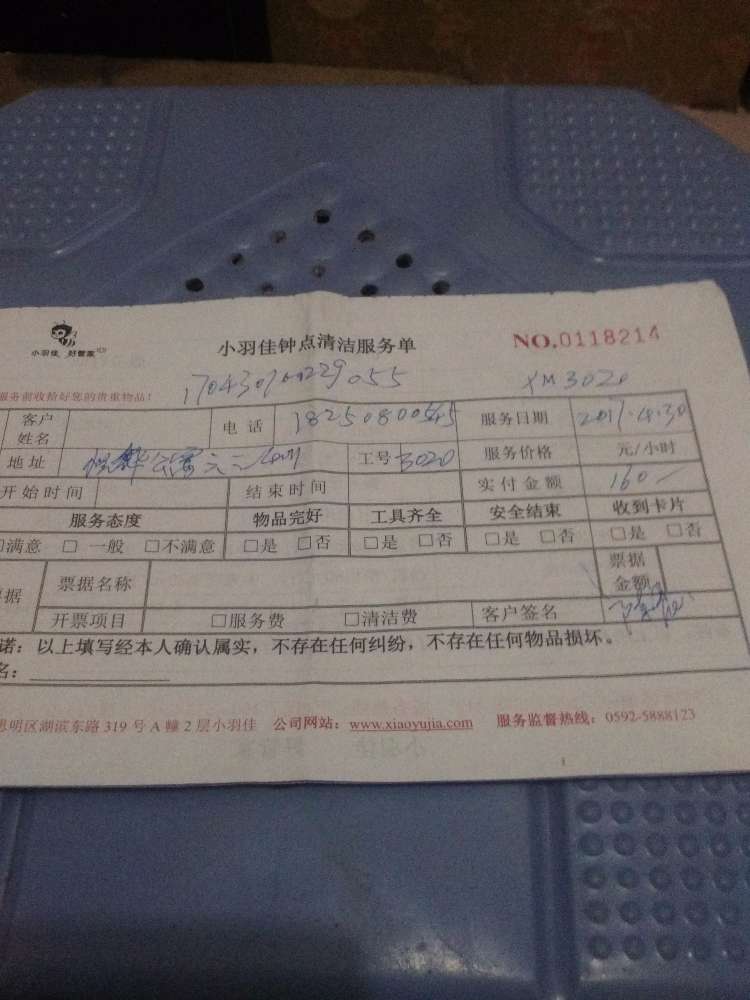 小羽佳 好管家
小羽佳钟点清洁服务单
NO.0118214
服务前收拾好您的贵重物品!
XM3020
客户姓名 电话 服务日期 2017.4.30
地址 工号 3020 服务价格 元/小时
开始时间 结束时间 实付金额 160
服务态度 物品完好 工具齐全 安全结束 收到卡片
□满意 □一般 □不满意 □是 □否 □是 □否 □是 □否 □是 □否
据 票据名称 票据金额
开票项目 □服务费 □清洁费 客户签名
诺:以上填写经本人确认属实,不存在任何纠纷,不存在任何物品损坏。
名:
思明区湖滨东路 319 号 A 幢 2 层小羽佳 公司网站:www.xiaoyujia.com 服务监督热线:0592-5888123